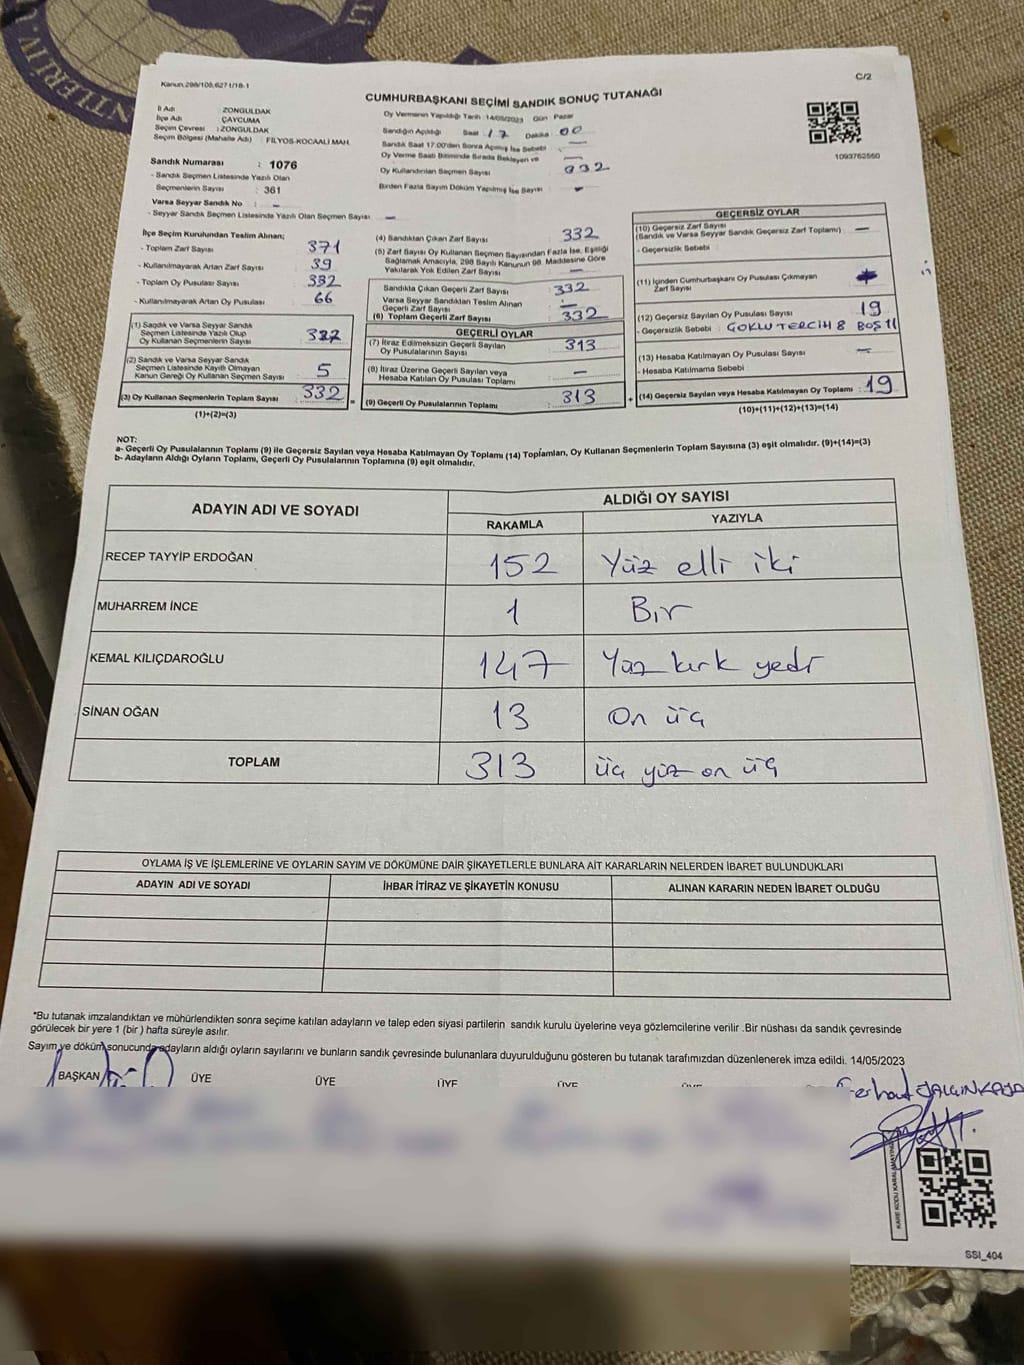 Kanun:298/108,6271/18-1
C/2
CUMHURBAŞKANI SEÇİMİ SANDIK SONUÇ TUTANAĞI
İl Adı ZONGULDAK
İlçe Adı ÇAYCUMA
Seçim Çevresi : ZONGULDAK
Seçim Bölgesi (Mahalle Adı) : FİLYOS-KOCAALİ MAH.
Oy Vermenin Yapıldığı Tarih :14/05/2023 Gün Pazar
Sandığın Açıldığı Saat 17 Dakika 00
Sandık Saat 17.00'den Sonra Açılmış İse Sebebi : —
Oy Verme Saati Bitiminde Sırada Bekleyen ve —
Oy Kullandırılan Seçmen Sayısı
332
Birden Fazla Sayım Döküm Yapılmış İse Sayısı : -
1093762560
Sandık Numarası : 1076
- Sandık Seçmen Listesinde Yazılı Olan
Seçmenlerin Sayısı : 361
Varsa Seyyar Sandık No : -
- Seyyar Sandık Seçmen Listesinde Yazılı Olan Seçmen Sayısı : —
İlçe Seçim Kurulundan Teslim Alınan;
- Toplam Zarf Sayısı : 371
- Kullanılmayarak Artan Zarf Sayısı : 39
- Toplam Oy Pusulası Sayısı : 332
- Kullanılmayarak Artan Oy Pusulası : 66
(1) Sandık ve Varsa Seyyar Sandık
Seçmen Listesinde Yazılı Olup
Oy Kullanan Seçmenlerin Sayısı : 327
(2) Sandık ve Varsa Seyyar Sandık
Seçmen Listesinde Kayıtlı Olmayan
Kanun Gereği Oy Kullanan Seçmen Sayısı : 5
(3) Oy Kullanan Seçmenlerin Toplam Sayısı : 332
(1)+(2)=(3)
(4) Sandıktan Çıkan Zarf Sayısı : 332
(5) Zarf Sayısı Oy Kullanan Seçmen Sayısından Fazla İse, Eşitliği
Sağlamak Amacıyla, 298 Sayılı Kanunun 98. Maddesine Göre
Yakılarak Yok Edilen Zarf Sayısı : —
Sandıkta Çıkan Geçerli Zarf Sayısı : 332
Varsa Seyyar Sandıktan Teslim Alınan
Geçerli Zarf Sayısı : —
(6) Toplam Geçerli Zarf Sayısı : 332
GEÇERLİ OYLAR
(7) İtiraz Edilmeksizin Geçerli Sayılan
Oy Pusulalarının Sayısı : 313
(8) İtiraz Üzerine Geçerli Sayılan veya
Hesaba Katılan Oy Pusulası Toplamı : —
(9) Geçerli Oy Pusulalarının Toplamı : 313
GEÇERSİZ OYLAR
(10) Geçersiz Zarf Sayısı : —
(Sandık ve Varsa Seyyar Sandık Geçersiz Zarf Toplamı)
- Geçersizlik Sebebi :
(11) İçinden Cumhurbaşkanı Oy Pusulası Çıkmayan
Zarf Sayısı
(12) Geçersiz Sayılan Oy Pusulası Sayısı : 19
- Geçersizlik Sebebi : ÇOKLU TERCİH 8 BOŞ 11
(13) Hesaba Katılmayan Oy Pusulası Sayısı : —
- Hesaba Katılmama Sebebi
(14) Geçersiz Sayılan veya Hesaba Katılmayan Oy Toplamı : 19
(10)+(11)+(12)+(13)=(14)
NOT:
a- Geçerli Oy Pusulalarının Toplamı (9) ile Geçersiz Sayılan veya Hesaba Katılmayan Oy Toplamı (14) Toplamları, Oy Kullanan Seçmenlerin Toplam Sayısına (3) eşit olmalıdır. (9)+(14)=(3)
b- Adayların Aldığı Oyların Toplamı, Geçerli Oy Pusulalarının Toplamına (9) eşit olmalıdır.
ADAYIN ADI VE SOYADI
ALDIĞI OY SAYISI
RAKAMLA YAZIYLA
RECEP TAYYİP ERDOĞAN 152 Yüz elli iki
MUHARREM İNCE 1 Bir
KEMAL KILIÇDAROĞLU 147 Yüz kırk yedi
SİNAN OĞAN 13 On üç
TOPLAM 313 üç yüz on üç
OYLAMA İŞ VE İŞLEMLERİNE VE OYLARIN SAYIM VE DÖKÜMÜNE DAİR ŞİKAYETLERLE BUNLARA AİT KARARLARIN NELERDEN İBARET BULUNDUKLARI
ADAYIN ADI VE SOYADI İHBAR İTİRAZ VE ŞİKAYETİN KONUSU ALINAN KARARIN NEDEN İBARET OLDUĞU
*Bu tutanak imzalandıktan ve mühürlendikten sonra seçime katılan adayların ve talep eden siyasi partilerin sandık kurulu üyelerine veya gözlemcilerine verilir .Bir nüshası da sandık çevresinde
görülecek bir yere 1 (bir ) hafta süreyle asılır.
Sayım ve döküm sonucunda adayların aldığı oyların sayılarını ve bunların sandık çevresinde bulunanlara duyurulduğunu gösteren bu tutanak tarafımızdan düzenlenerek imza edildi. 14/05/2023
BAŞKAN ÜYE ÜYE ÜYE ÜYE
Ferhat YALÇINKAYA
SSI_404